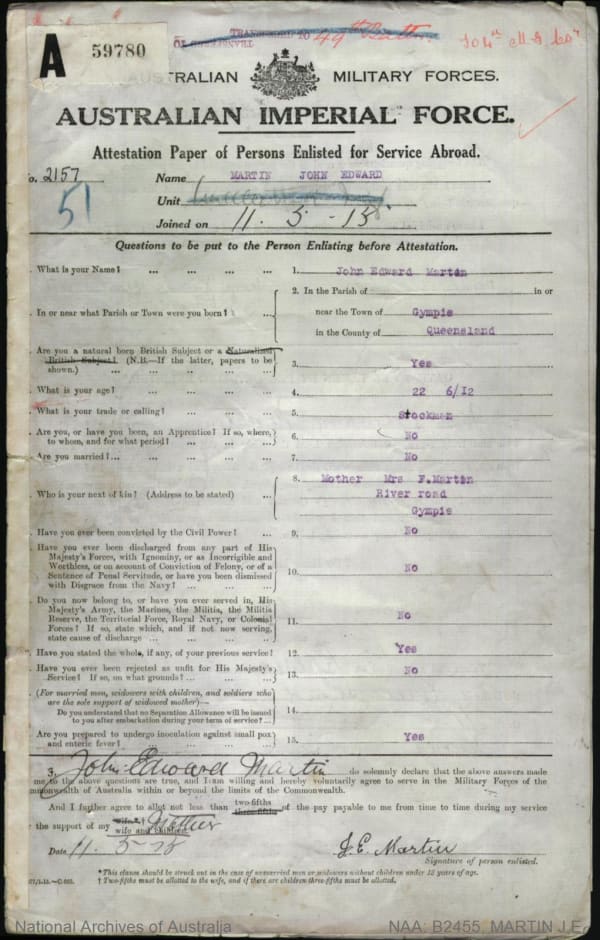 TRANSFERRED TO 49th Battn.
104th M G Coy
A 59780
AUSTRALIAN MILITARY FORCES.
AUSTRALIAN IMPERIAL FORCE.
Attestation Paper of Persons Enlisted for Service Abroad.
o. 2157 Name MARTIN JOHN EDWARD
51 Unit
Joined on 11. 5 - 15
Questions to be put to the Person Enlisting before Attestation.
. What is your Name? ... ... ... ... 1. John Edward Martin
2. In the Parish of in or
. In or near what Parish or Town were you born? ... near the Town of Gympie
in the County of Queensland
. Are you a natural born British Subject or a Naturalised
British Subject? (N.B.—If the latter, papers to be
shown.) ... ... ... ... ... 3. Yes
. What is your age? ... ... ... ... 4. 22 6/12
. What is your trade or calling? ... ... ... 5. Stockman
. Are you, or have you been, an Apprentice? If so, where,
to whom, and for what period? ... ... ... 6. No
. Are you married?... ... ... ... ... 7. No
8. Mother Mrs F.Martin
. Who is your next of kin? (Address to be stated) ... River road
Gympie
. Have you ever been convicted by the Civil Power? ... 9. No
. Have you ever been discharged from any part of His
Majesty's Forces, with Ignominy, or as Incorrigible and
Worthless, or on account of Conviction of Felony, or of a
Sentence of Penal Servitude, or have you been dismissed
with Disgrace from the Navy? ... ... ... 10. No
. Do you now belong to, or have you ever served in, His
Majesty's Army, the Marines, the Militia, the Militia
Reserve, the Territorial Force, Royal Navy, or Colonial
Forces? If so, state which, and if not now serving,
state cause of discharge ... ... ... ... 11. No
. Have you stated the whole, if any, of your previous service? 12. Yes
. Have you ever been rejected as unfit for His Majesty's
Service? If so, on what grounds? ... ... ... 13. No
. (For married men, widowers with children, and soldiers who
are the sole support of widowed mother)—
Do you understand that no Separation Allowance will be issued
to you after embarkation during your term of service? ... 14.
. Are you prepared to undergo inoculation against small pox
and enteric fever? ... ... ... ... 15. Yes
3, John Edward Martin do solemnly declare that the above answers made
me to the above questions are true, and I am willing and hereby voluntarily agree to serve in the Military Forces of the
mmonwealth of Australia within or beyond the limits of the Commonwealth.
And I further agree to allot not less than two-fifths three-fifths of the pay payable to me from time to time during my service
the support of my wife* † wife and children Mother
Date 11. 5 - 15 J. E. Martin
Signature of person enlisted.
* This clause should be struck out in the case of unmarried men or widowers without children under 18 years of age.
† Two-fifths must be allotted to the wife, and if there are children three-fifths must be allotted.
National Archives of Australia NAA: B2455, MARTIN J E